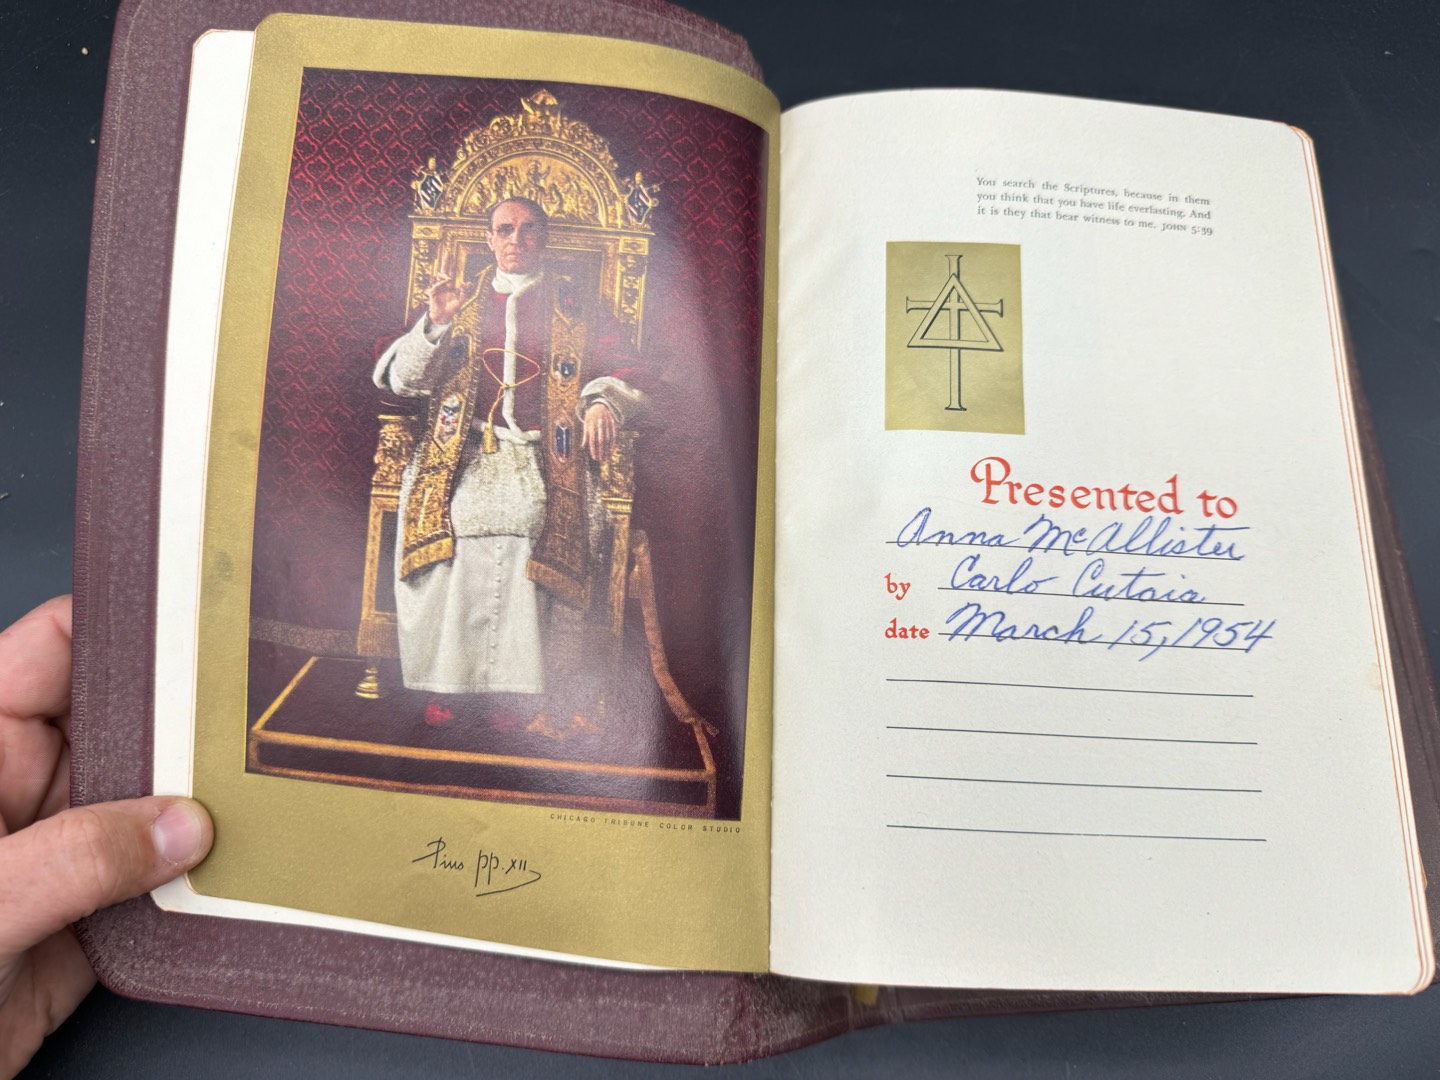 CHICAGO TRIBUNE COLOR STUDIO
Pius pp. XII
You search the Scriptures, because in them
you think that you have life everlasting. And
it is they that bear witness to me. JOHN 5:39
Presented to
Anna McAllister
by Carlo Cutaia
date March 15, 1954